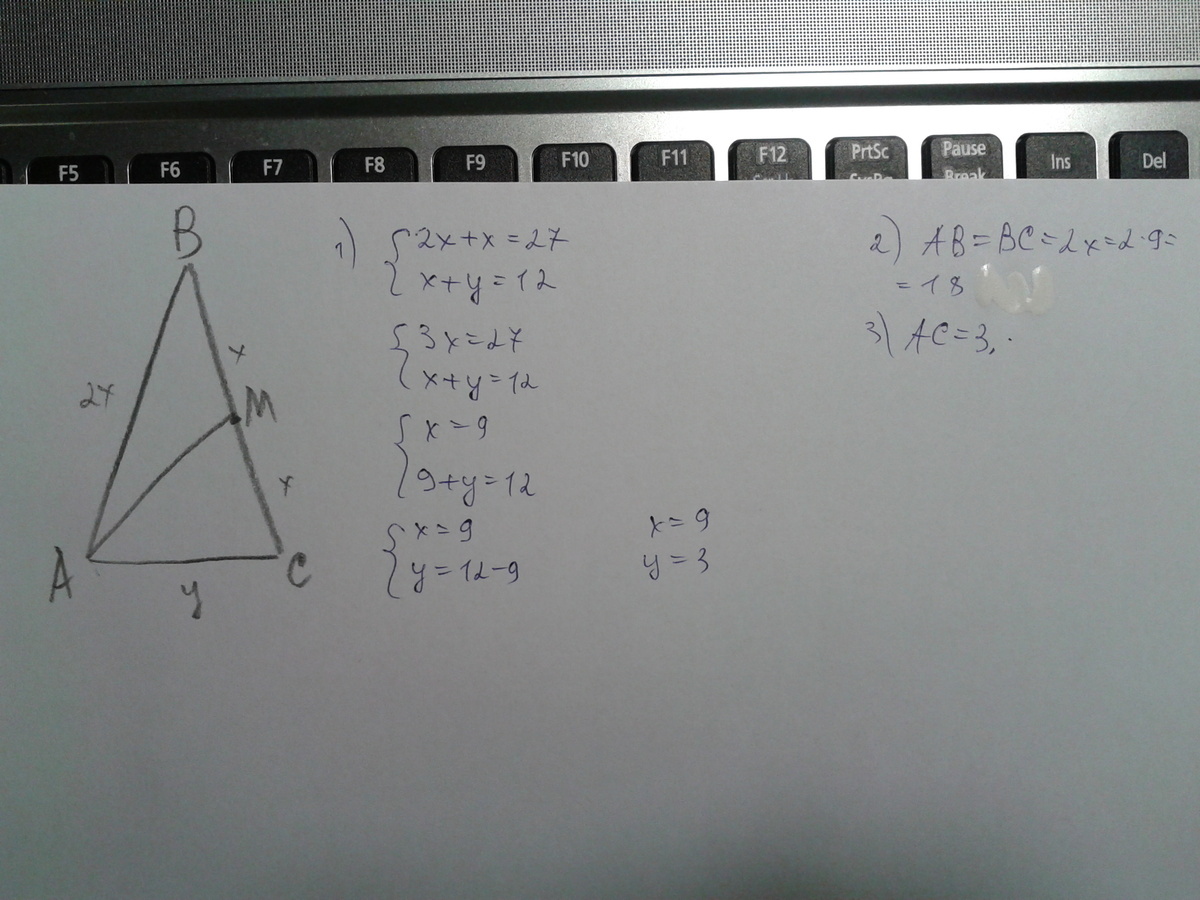 F5 F6 F7 F8 F9 F10 F11 F12 PrtSc Pause Ins Del
Break
B
2x
x
M
x
A
y
C
1) { 2x+x=27
x+y=12
{ 3x=27
x+y=12
{ x=9
9+y=12
{ x=9
y=12-9
x=9
y=3
2) AB=BC=2x=2·9=
=18
3) AC=3,.